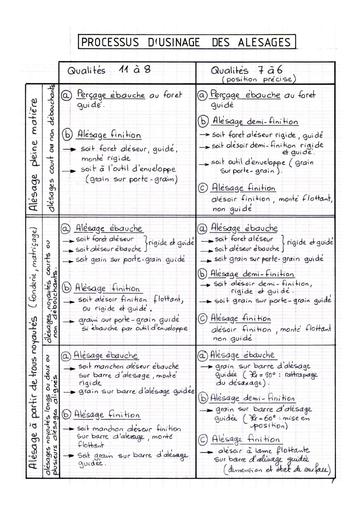 PROCESSUS D'USINAGE DES ALESAGES
Qualités 11 à 8
Qualités 7 à 6
(position précise)
Alésage pleine matière
alésages court ou non débouchants
a Perçage ébauche au foret
guidé.
b Alésage finition
→ soit foret aléseur, guidé,
monté rigide
→ soit à l'outil d'enveloppe
(grain sur porte-grain)
a Perçage ébauche au foret
guidé
b Alésage demi-finition
→ soit foret aléseur rigide, guidé
→ soit alésoir demi-finition rigide
et guidé
→ soit outil d'enveloppe (grain
sur porte-grain).
c Alésage finition
alésoir finition, monté flottant,
non guidé
Alésage à partir de trous noyautés (fonderie, matriçage)
alésages noyautés courts ou
non débouchants
a Alésage ébauche
→ soit foret aléseur
→ soit aléseur
} rigide et guidé
→ soit grain sur porte-grain guidé
b Alésage finition
→ soit alésoir finition flottant,
ou rigide et guidé.
→ grain sur porte-grain guidé
si ébauche par outil d'enveloppe
a Alésage ébauche
→ soit foret aléseur
→ soit aléseur
} rigide et guidé
→ soit grain sur porte-grain guidé
b Alésage demi-finition
→ soit alésoir demi-finition,
rigide et guidé
→ soit grain sur porte-grain guidé.
c Alésage finition
alésoir finition, monté flottant
non guidé
alésages noyautés longs ou deux ou
plusieurs alésages alignés
a Alésage ébauche
→ soit manchon aléseur ébauche
sur barre d'alésage, monté
rigide
→ grain sur barre d'alésage guidée
b Alésage finition
→ soit manchon aléseur finition
sur barre d'alésage, monté
flottant
→ Soit grain sur barre d'alésage
guidée.
a Alésage ébauche
→ grain sur barre d'alésage
guidée ( = 90° : rattrapage
du désaxage).
b Alésage demi-finition
→ grain sur barre d'alésage
guidée ( = 60° - mise en
position)
c Alésage finition
→ alésoir à lame flottante
sur barre d'alésage guidée
(dimension et état de surface)